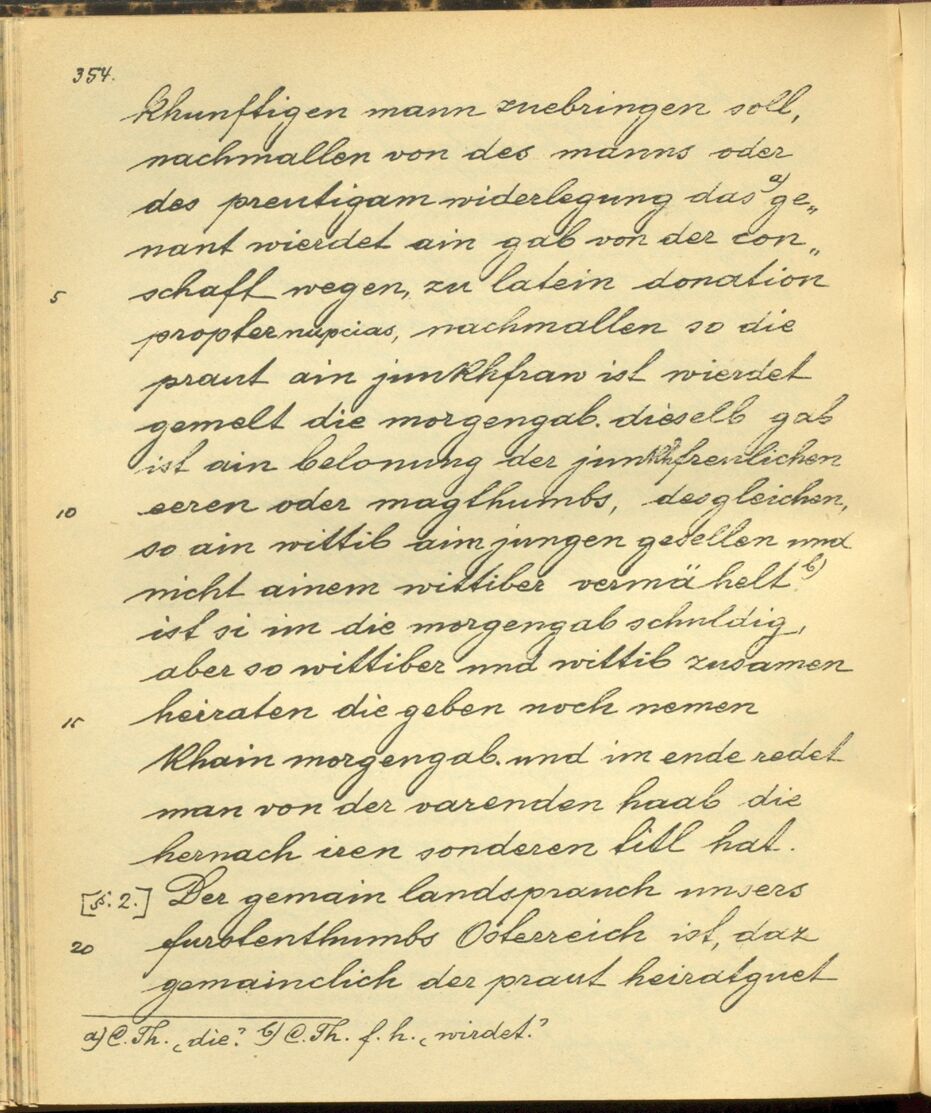 354.
khunftigen mann zuebringen soll,
nachmallen von des manns oder
des preutigam widerlegung das a) ge„
nant wierdet ain gab von der con„
5 schaft wegen, zu latein donation
propter nupcias, nachmallen so die
praut ain junkhfraw ist wierdet
gemelt die morgengab. dieselb gab
ist ain belonung der junkhfreulichen
10 eeren oder magthumbs, desgleichen,
so ain wittib aim jungen gesellen und
nicht ainem wittiber vermähelt b)
ist si im die morgengab schuldig,
aber so wittiber und wittib zusamen
15 heiraten die geben noch nemen
khain morgengab. und im ende redet
man von der varenden haab die
hernach iren sonderen titl hat.
[§. 2.] Der gemain landsprauch unsers
20 furstenthumbs Österreich ist, daz
gemainclich der praut heiratguet
a) C. Th. „die“. b) C. Th. f. h. „wirdet.“